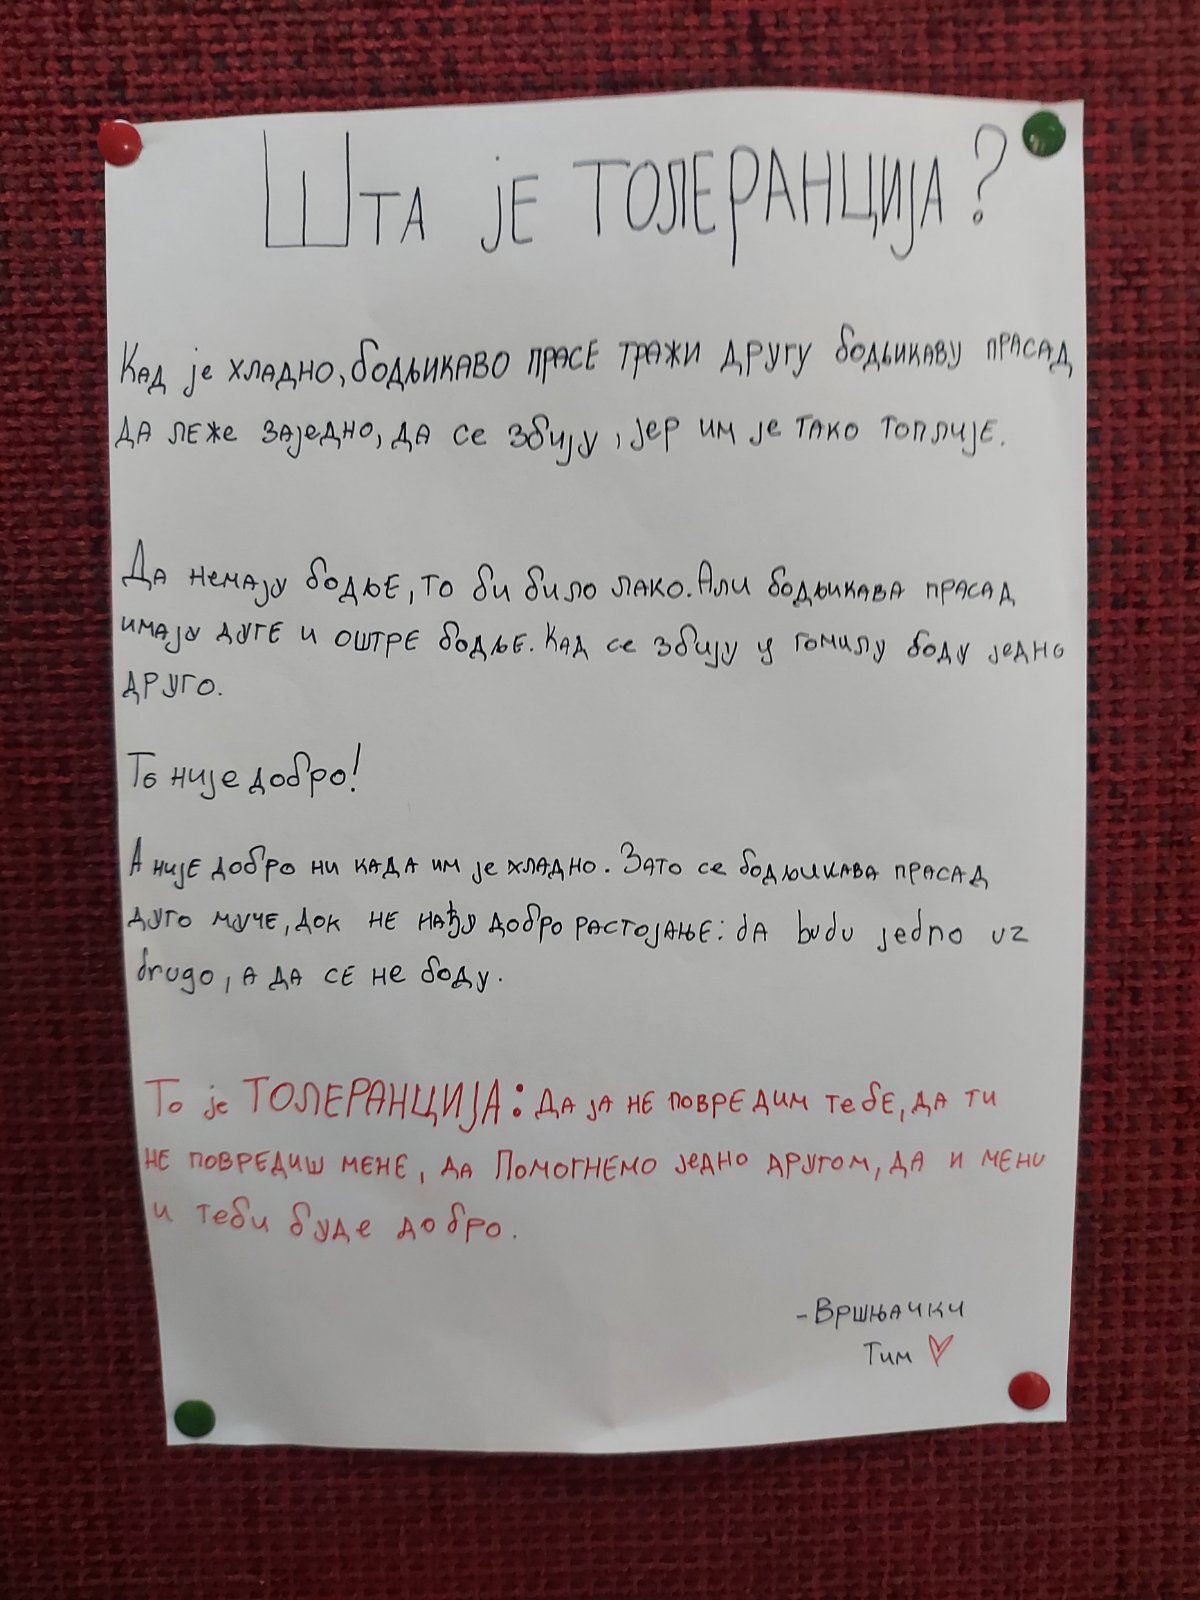 Шта је ТОЛЕРАНЦИЈА?
Кад је хладно, бодљикаво прасе тражи другу бодљикаву прасад
да леже заједно, да се збију, јер им је тако топлије.
Да немају бодље, то би било лако. Али бодљикава прасад
имају дуге и оштре бодље. Кад се збију у гомилу боду једно
друго.
То није добро!
А није добро ни када им је хладно. Зато се бодљикава прасад
дуго муче, док не нађу добро растојање: da budu jedno uz
drugo, а да се не боду.
То је ТОЛЕРАНЦИЈА: да ја не повредим тебе, да ти
не повредиш мене, да Помогнемо једно другом, да и мени
и теби буде добро.
-Вршњачки
Тим